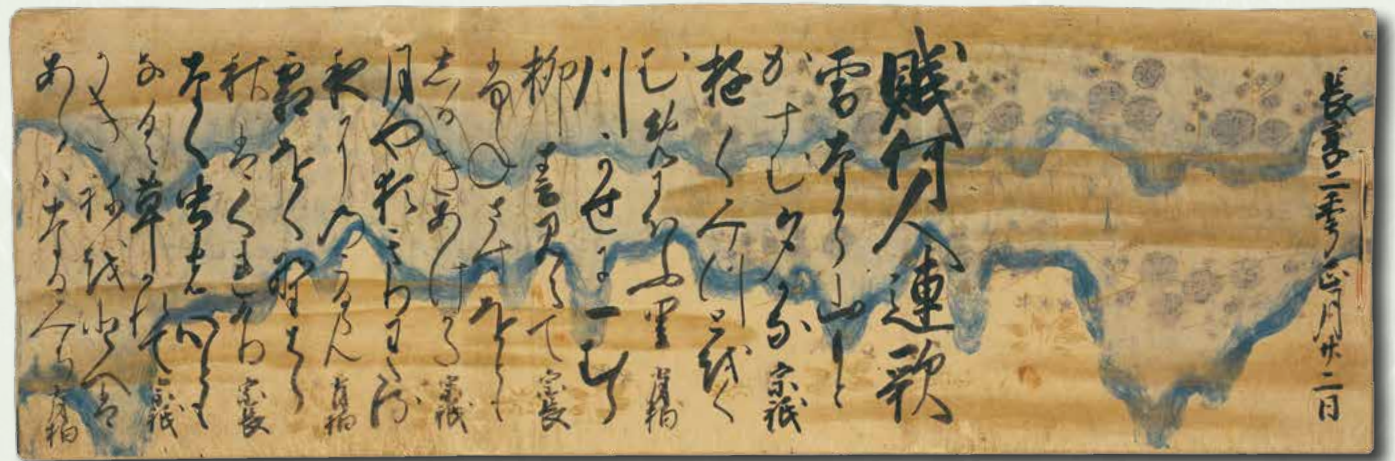 長享二年正月廿二日
賦何人連歌
雪なから山もと
かすむ夕かな 宗祇
行くみつとをく
むめにほふ里 肖柏
川かせに一むら
柳春見えて 宗長
舟さすをとも
しるきあけかた 宗祇
月や猶きりわたる
夜にのこるらん 肖柏
霜をく野はら
秋はくれけり 宗長
なく虫の心とも
なく草かれて 宗祇
かきねをとへは
あらはなるみち 肖柏